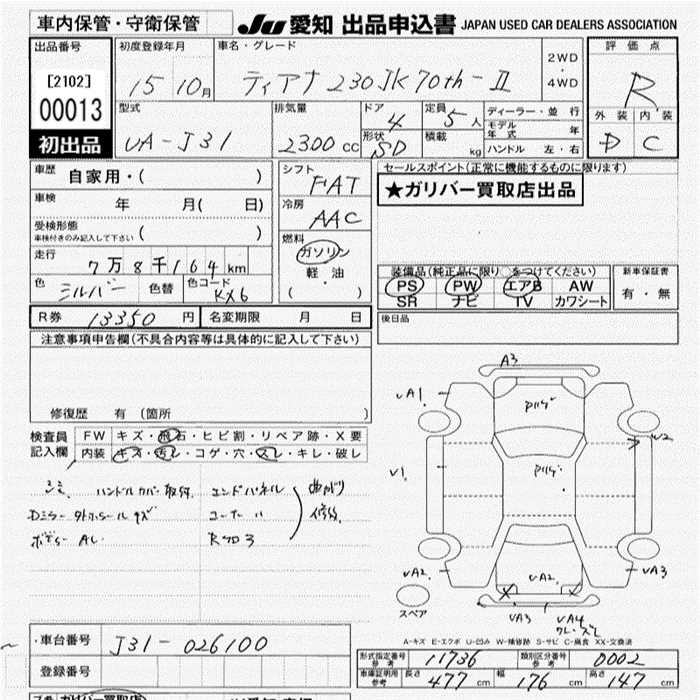 車内保管・守衛保管
JU 愛知 出品申込書 JAPAN USED CAR DEALERS ASSOCIATION
出品番号 初度登録年月 車名・グレード 2WD・4WD 評価点
[2102] 15 10月 ティアナ 230JK 70th-Ⅱ R
00013 型式 排気量 ドア 4 定員 5人 ディーラー・並行 外装 内装
初出品 UA-J31 2300cc 形状 SD 積載 kg モデル年式 年 D C
ハンドル 左・右
車歴 自家用・( ) シフト FAT セールスポイント(正常に機能するものに限ります)
車検 年 月( 日) 冷房 AAC ★ガリバー買取店出品
受検形態 車検付きのみ記入して下さい ( ) 燃料 ガソリン
走行 7万8千164km 軽・油 ( ) 装備品(純正品に限り○をつけてください) 新車保証書
色 シルバー 色替 色コード KX6 PS PW エアB AW 有・無
SR ナビ TV カワシート
R券 13350円 名変期限 月 日 後日品
注意事項申告欄(不具合内容等は具体的に記入して下さい)
修復歴 有 (箇所 )
検査員記入欄 FW キズ・飛石・ヒビ割・リペア跡・X要
内装 キズ・汚レ・コゲ・穴・スレ・キレ・破レ
シミ ハンドルカバー取付 エンドパネル 曲がり
Dミラー コーナー 〃
ボデー AL
A3
UA1
V1
UA2
UA3
UA2
UA3
UA4
スペア
A-キズ E-エクボ U-凹み W-補修跡 S-サビ C-腐食 XX-交換済
車台番号 J31-026100
登録番号
形式指定番号 参考 11736 類別区分番号 参考 0002
車庫証明用 参考 長さ 477cm 幅 176cm 高さ 147cm
ガリバー買取店